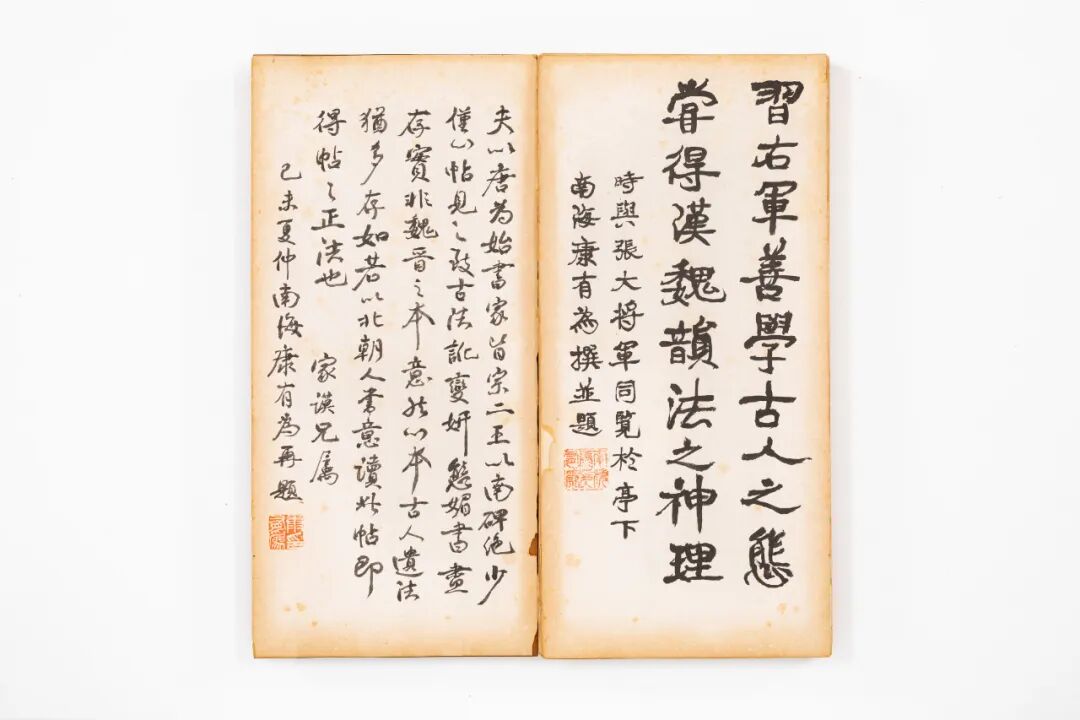 習右軍善學古人之態
甞得漢魏韻法之神理
時與張大將軍同覧於亭下
南海康有為撰並題
夫以唐為始書家皆宗二王以南碑絶少
僅以帖見之致古法訛變妍態媚書盡
存實非魏晋之本意然以本古人遺法
猶多存如若以北朝人書意讀此帖即
得帖之正法也 家谟兄属
己未夏仲南海康有為再題